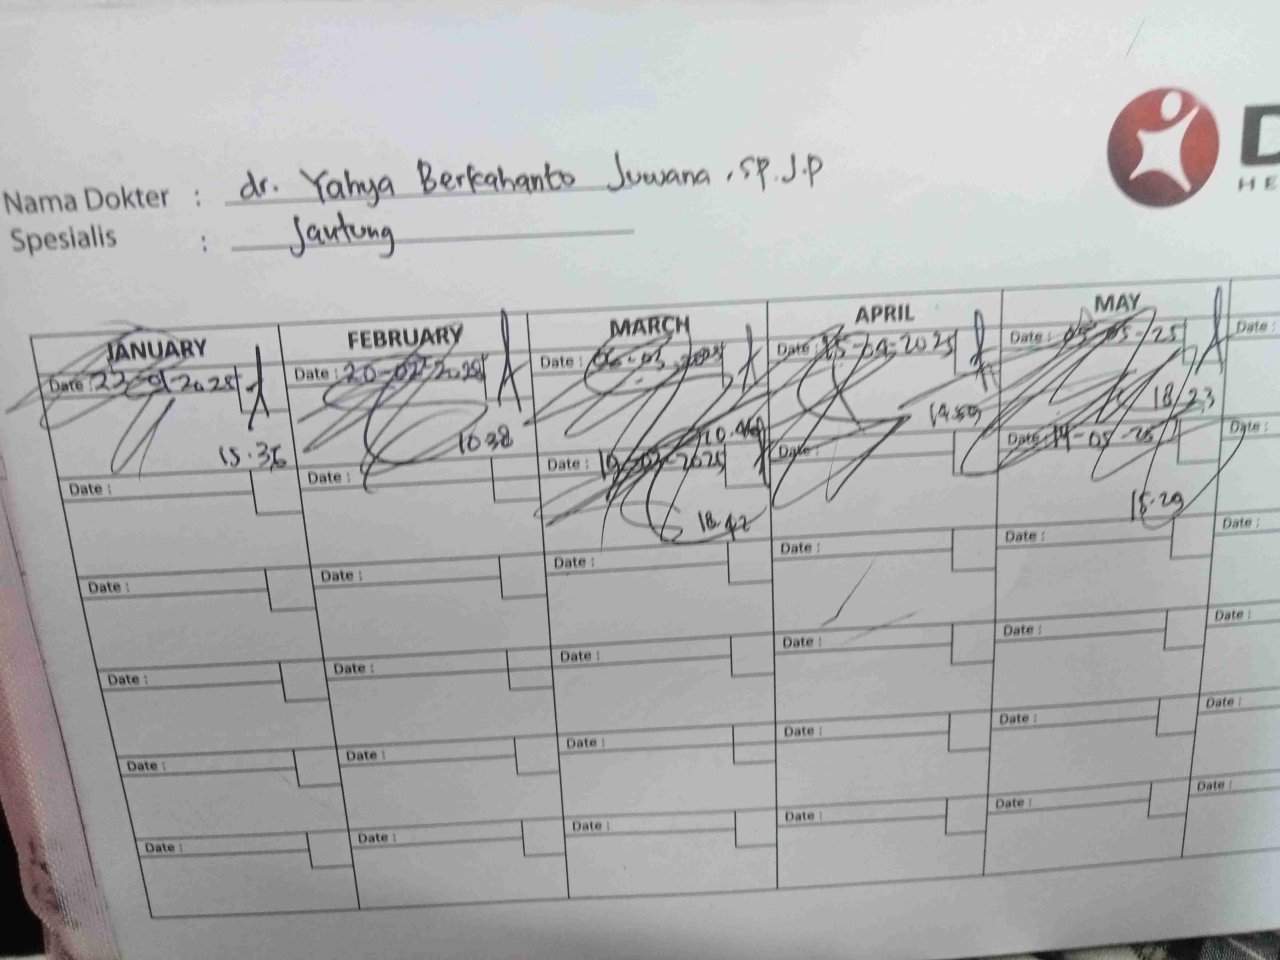 D
HE
Nama Dokter : dr. Yahya Berkahanto Juwana, Sp.J.P
Spesialis : Jantung
JANUARY FEBRUARY MARCH APRIL MAY
Date : 22-01-2025 Date : 20-02-2025 Date : 06-03-2025 Date : 15-04-2025 Date : 05-05-25 Date :
15.36 10.38 14.59 18.23
Date : Date : Date : 19-03-2025 Date : Date : 14-05-25 Date :
18.42 15.29
Date : Date : Date : Date : Date : Date :
Date : Date : Date : Date : Date : Date :
Date : Date : Date : Date : Date : Date :
Date : Date : Date : Date : Date : Date :